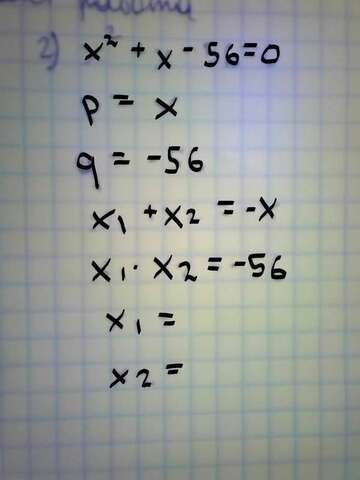 работа
2) x² + x - 56 = 0
p = x
q = -56
x₁ + x₂ = -x
x₁ · x₂ = -56
x₁ =
x₂ =